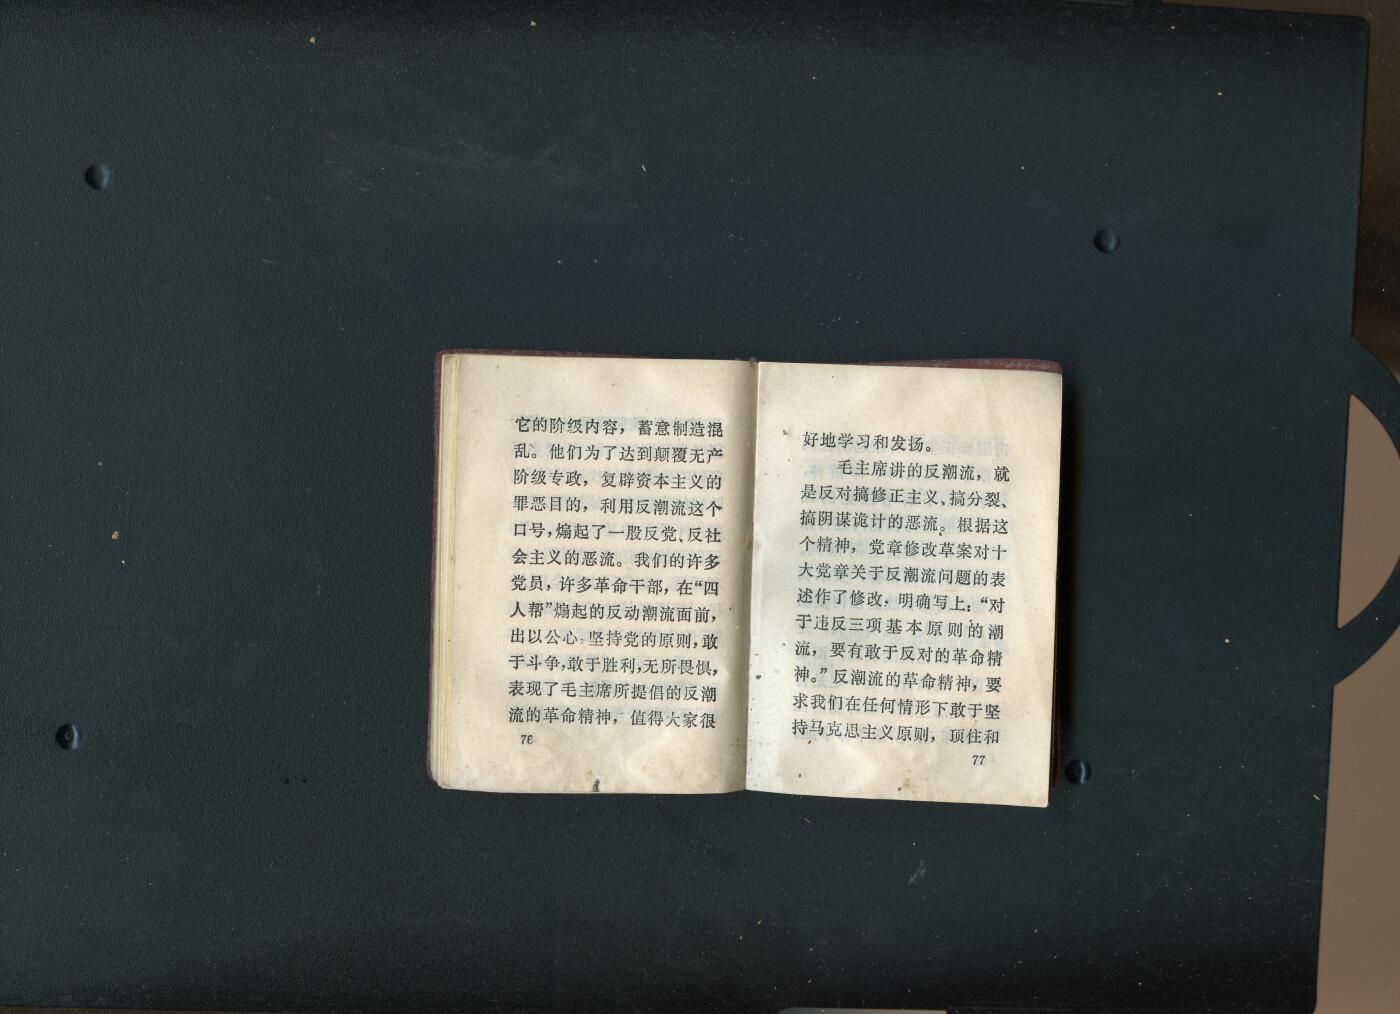 它的阶级内容，蓄意制造混
乱。他们为了达到颠覆无产
阶级专政，复辟资本主义的
罪恶目的，利用反潮流这个
口号，煽起了一股反党、反社
会主义的恶流。我们的许多
党员，许多革命干部，在“四
人帮”煽起的反动潮流面前，
出以公心，坚持党的原则，敢
于斗争，敢于胜利，无所畏惧，
表现了毛主席所提倡的反潮
流的革命精神，值得大家很
76
好地学习和发扬。
毛主席讲的反潮流，就
是反对搞修正主义、搞分裂、
搞阴谋诡计的恶流。根据这
个精神，党章修改草案对十
大党章关于反潮流问题的表
述作了修改，明确写上：“对
于违反三项基本原则的潮
流，要有敢于反对的革命精
神。”反潮流的革命精神，要
求我们在任何情形下敢于坚
持马克思主义原则，顶住和
77